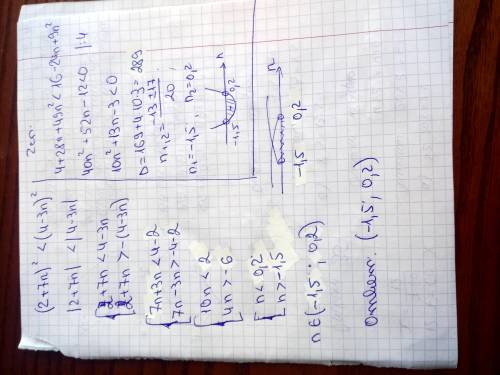 (2+7n)² < (4-3n)²
|2+7n| < |4-3n|
{ 2+7n < 4-3n
2+7n > -(4-3n)
{ 7n+3n < 4-2
7n-3n > -4-2
{ 10n < 2
4n > -6
{ n < 0,2
n > -1,5
n
-1,5 0,2
n ∈ (-1,5; 0,2)
Ответ: (-1,5; 0,2)
2 сп.
4+28n+49n² < 16-24n+9n²
40n²+52n-12<0 |:4
10n²+13n-3<0
D=169+4·10·3=289
n₁,₂ = -13±17 / 20
n₁=-1,5, n₂=0,2
n
-1,5 0,2